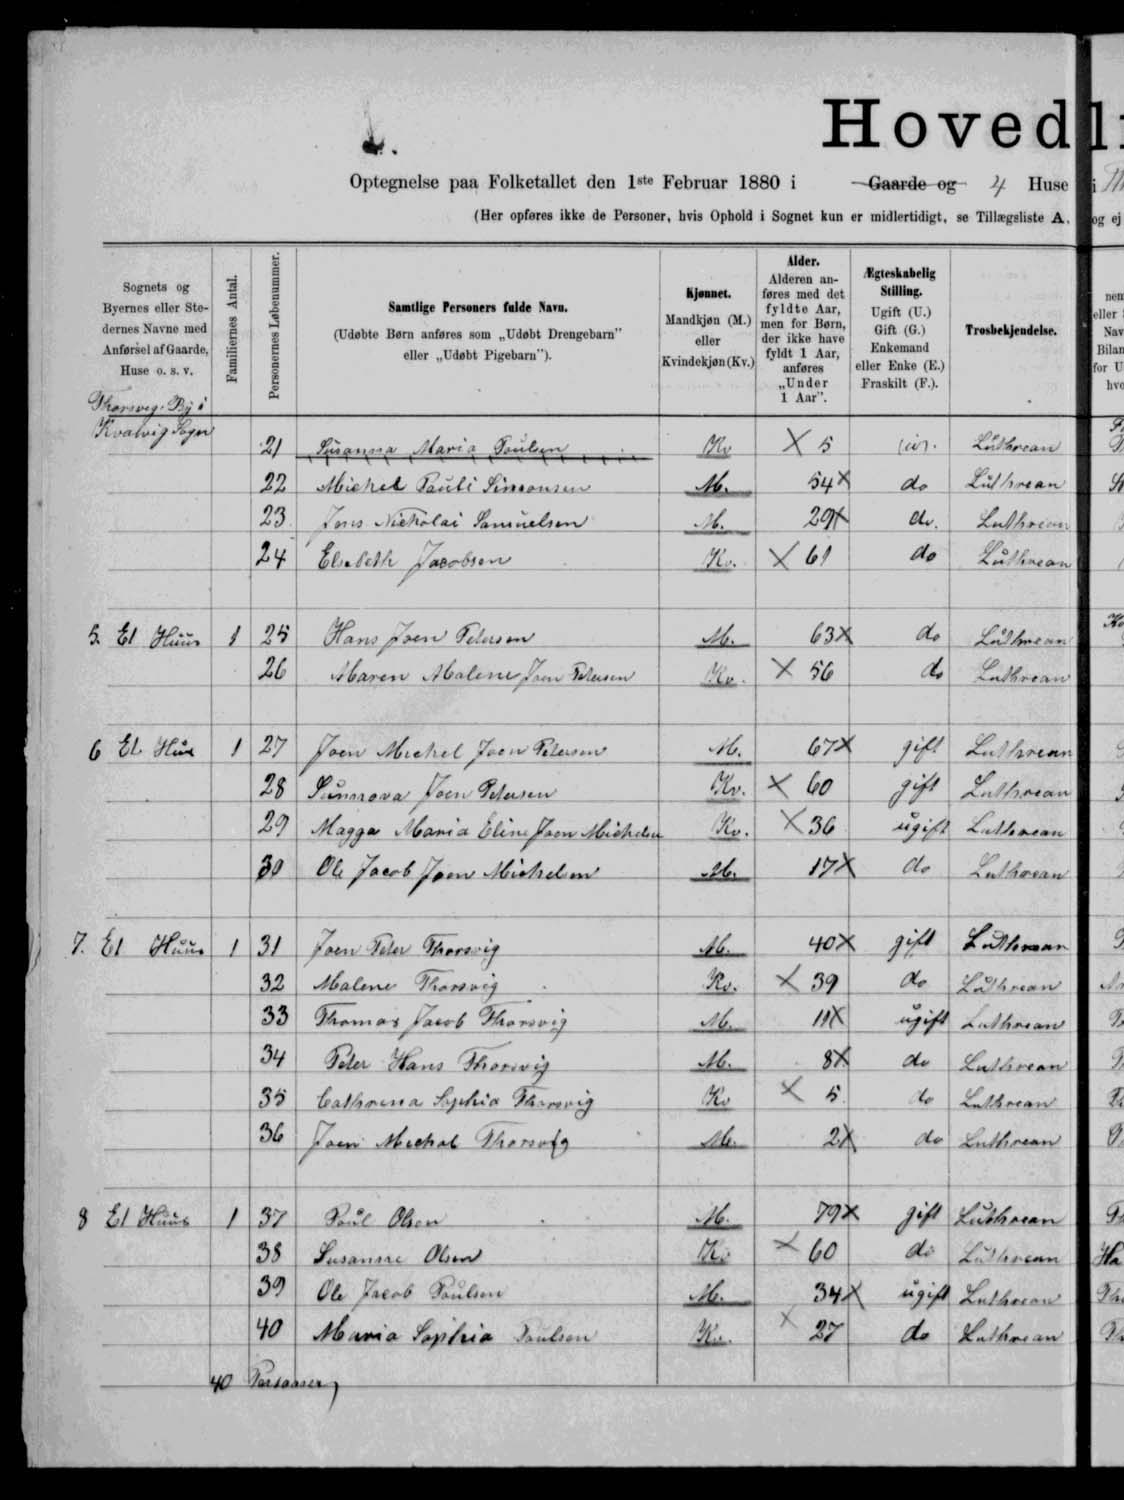 Hovedli
Optegnelse paa Folketallet den 1ste Februar 1880 i Gaarde og 4 Huse i
(Her opføres ikke de Personer, hvis Ophold i Sognet kun er midlertidigt, se Tillægsliste A, og ej
Sognets og Byernes eller Stedernes Navne med Anførsel af Gaarde, Huse o. s. v.
Familiernes Antal.
Personernes Løbenummer.
Samtlige Personers fulde Navn.
(Udøbte Børn anføres som „Udøbt Drengebarn" eller „Udøbt Pigebarn").
Kjønnet.
Mandkjøn (M.) eller Kvindekjøn (Kv.)
Alder.
Alderen anføres med det fyldte Aar, men for Børn, der ikke have fyldt 1 Aar, anføres „Under 1 Aar".
Ægteskabelig Stilling.
Ugift (U.) Gift (G.) Enkemand eller Enke (E.) Fraskilt (F.).
Trosbekjendelse.
Thorsvig By i
Kvalvig Sogn
21 Susanna Maria Poulsen Kv X 5 Luthrean
22 Michel Pauli Simonsen M. 54 X do Luthrean
23 Jens Nickolai Samuelsen M. 29 X do. Luthrean
24 Elsebeth Jacobsen Kv. X 61 do Luthrean
5. Et Huus 1 25 Hans Joen Petersen M. 63 X do Luthrean
26 Maren Malene Joen Petersen Kv. X 56 do Luthrean
6 Et Huus 1 27 Joen Michel Joen Petersen M. 67 X gift Luthrean
28 Sunnova Joen Petersen Kv. X 60 gift Luthrean
29 Magga Maria Eline Joen Michelsen Kv. X 36 ugift Luthrean
30 Ole Jacob Joen Michelsen M. 17 X do Luthrean
7. Et Huus 1 31 Joen Peter Thorsvig M. 40 X gift Luthrean
32 Malene Thorsvig Kv. X 39 do Luthrean
33 Thomas Jacob Thorsvig M. 11 X ugift Luthrean
34 Peter Hans Thorsvig M. 8 X do Luthrean
35 Cathrina Sophia Thorsvig Kv X 5 do Luthrean
36 Joen Michal Thorsvig M. 2 X do Luthrean
8 Et Huus 1 37 Poul Olsen M. 79 X gift Luthrean
38 Susanne Olsen Kv X 60 do Luthrean
39 Ole Jacob Poulsen M. 34 X ugift Luthrean
40 Maria Sophia Poulsen Kv. X 27 do Luthrean
40 Personer